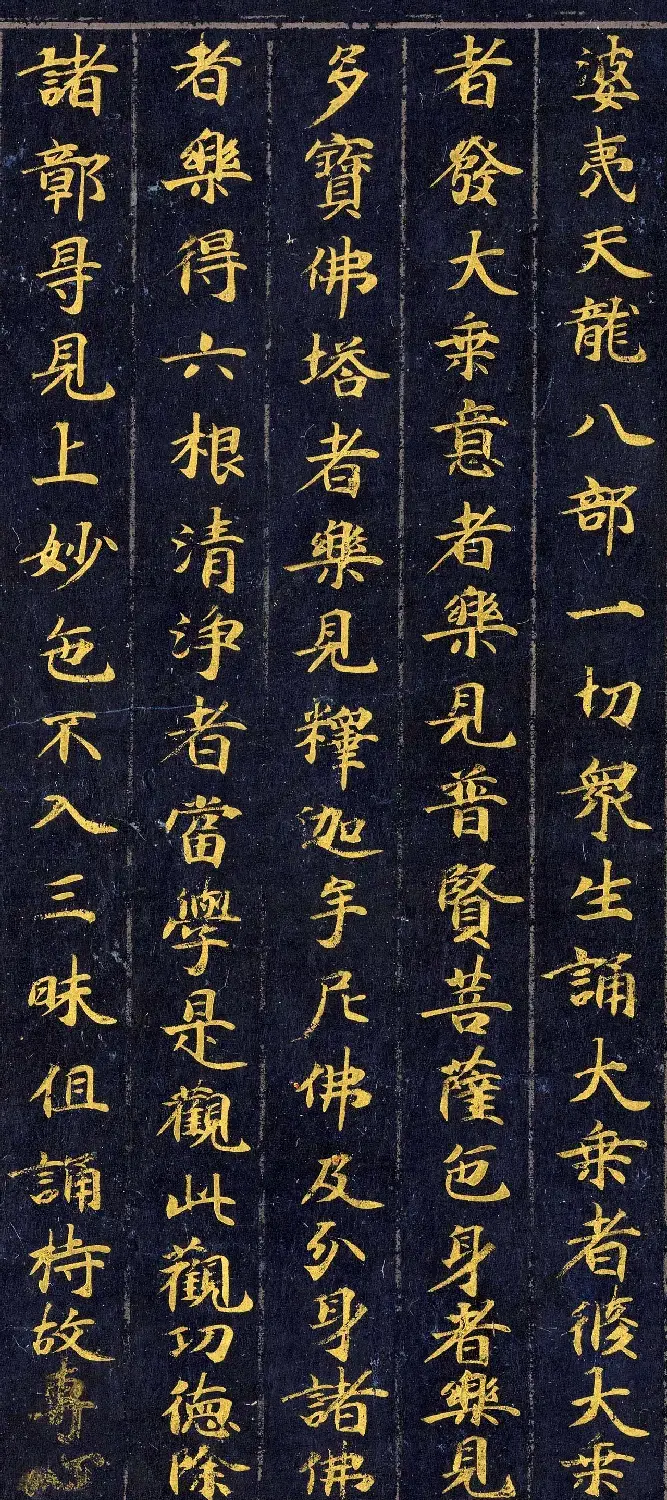 婆夷天龍八部一切衆生誦大乗者修大乗
者發大乗意者樂見普賢菩薩色身者樂見
多寶佛塔者樂見釋迦牟尼佛及分身諸佛
者樂得六根清淨者當學是觀此觀功德除
諸鄣㝵見上妙色不入三昧但誦持故專心